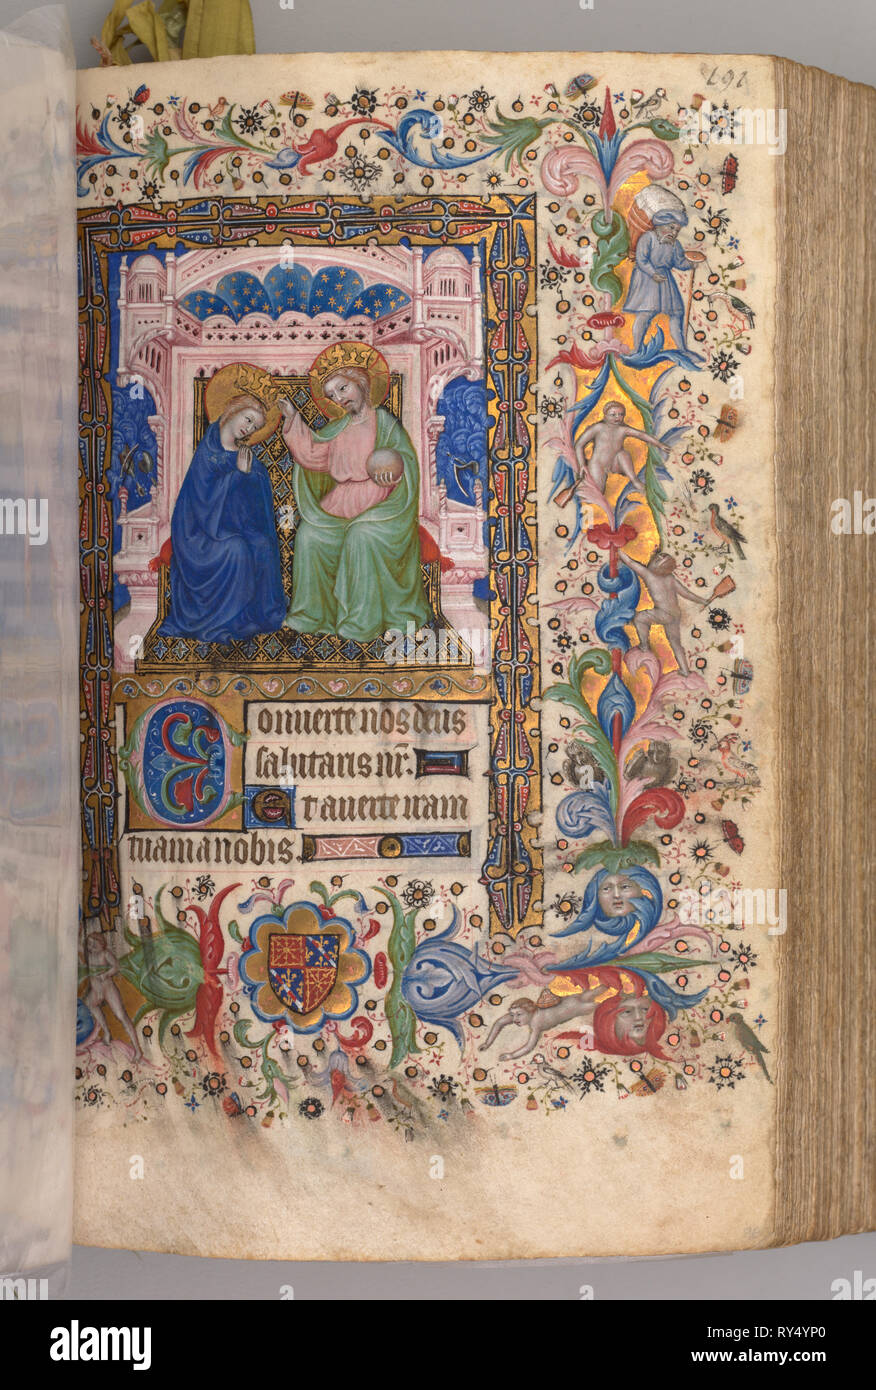 191
Conuerte nos deus
salutaris nr̄.
Et auerte iram
tuam a nobis.
alamy
Image ID: RY4YP0
www.alamy.com